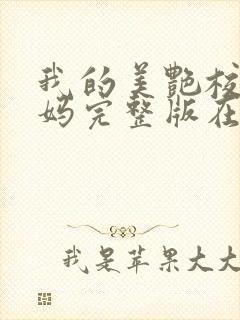 我的美艳校
妈完整版在
我是苹果大大